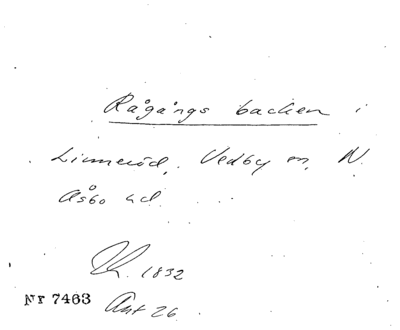 Rågångs backen i
Linneröd, Vedby sn, N.
Åsbo hd.
1832
Nr 7463 Ant 26